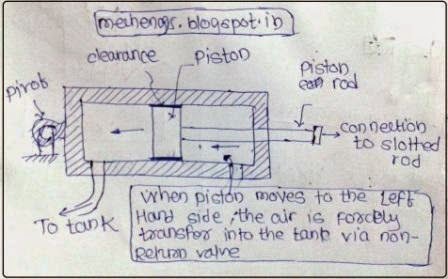 mechengs.blogspot.in
clearance
piston
Piston
rod
pivot
connection
to slotted
rod
To tank
When piston moves to the Left
Hand side, the air is forcely
transfer into the tank via non-
Return valve